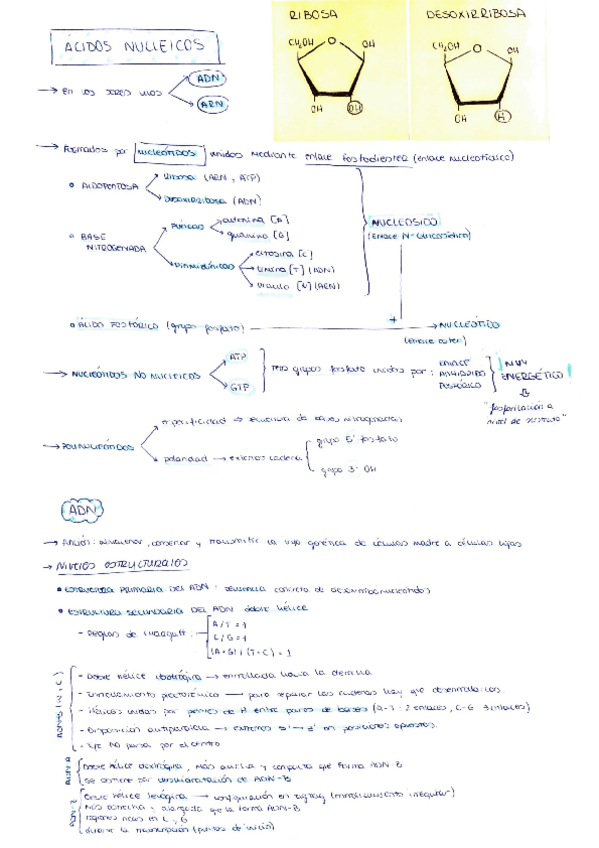 RIBOSA
DESOXIRRIBOSA
ÁCIDOS NUCLEICOS
CH₂OH O OH
OH OH
CH₂OH O OH
OH H
→ En los seres vivos
ADN
ARN
→ Formados por NUCLEÓTIDOS unidos mediante enlace fosfodiester (enlace nucleotídico)
• ALDOPENTOSA
ribosa (ARN, ATP)
desoxirribosa (ADN)
• BASE NITROGENADA
PÚRICAS
adenina [A]
guanina [G]
PIRIMIDÍNICAS
citosina [C]
timina [T] (ADN)
uracilo [U] (ARN)
NUCLEÓSIDO
(enlace N-Glucosídico)
+
• ÁCIDO FOSFÓRICO (grupo fosfato) → NUCLEÓTIDO
(enlace éster)
→ NUCLEÓTIDOS NO NUCLEICOS
ATP
GTP
Tres grupos fosfato unidos por:
ENLACE
ANHÍDRIDO
FOSFÓRICO
¡MUY
ENERGÉTICO!
"fosforilación a
nivel de sustrato"
→ POLINUCLEÓTIDOS
especificidad → secuencia de bases nitrogenadas
polaridad → extremos cadena
grupo 5' fosfato
grupo 3' OH
ADN
→ Función: almacenar, conservar y transmitir la info genética de células madre a células hijas
→ NIVELES ESTRUCTURALES
• ESTRUCTURA PRIMARIA DEL ADN: secuencia concreta de desoxirribonucleótidos
• ESTRUCTURA SECUNDARIA DEL ADN doble hélice
- Reglas de Chargaff:
A/T = 1
C/G = 1
(A+G)/(T+C) = 1
- Doble hélice dextrógira → enrollada hacia la derecha
- Enrollamiento plectonémico → para separar las cadenas hay que desenrollarlas.
- Hélices unidas por puentes de H entre pares de bases (A-T: 2 enlaces, C-G 3 enlaces)
- Disposición antiparalela → extremos 5' → 3' en posiciones opuestas.
- Eje NO pasa por el centro
ADN-A
Doble hélice dextrógira, más ancha y compacta que forma ADN-B
se obtiene por deshidratación de ADN-B
ADN-Z
Doble hélice levógira → configuración en zigzag (enrollamiento irregular)
Más estrecha y alargada que la forma ADN-B
regiones ricas en C y G
durante la transcripción (puntos de inicio)